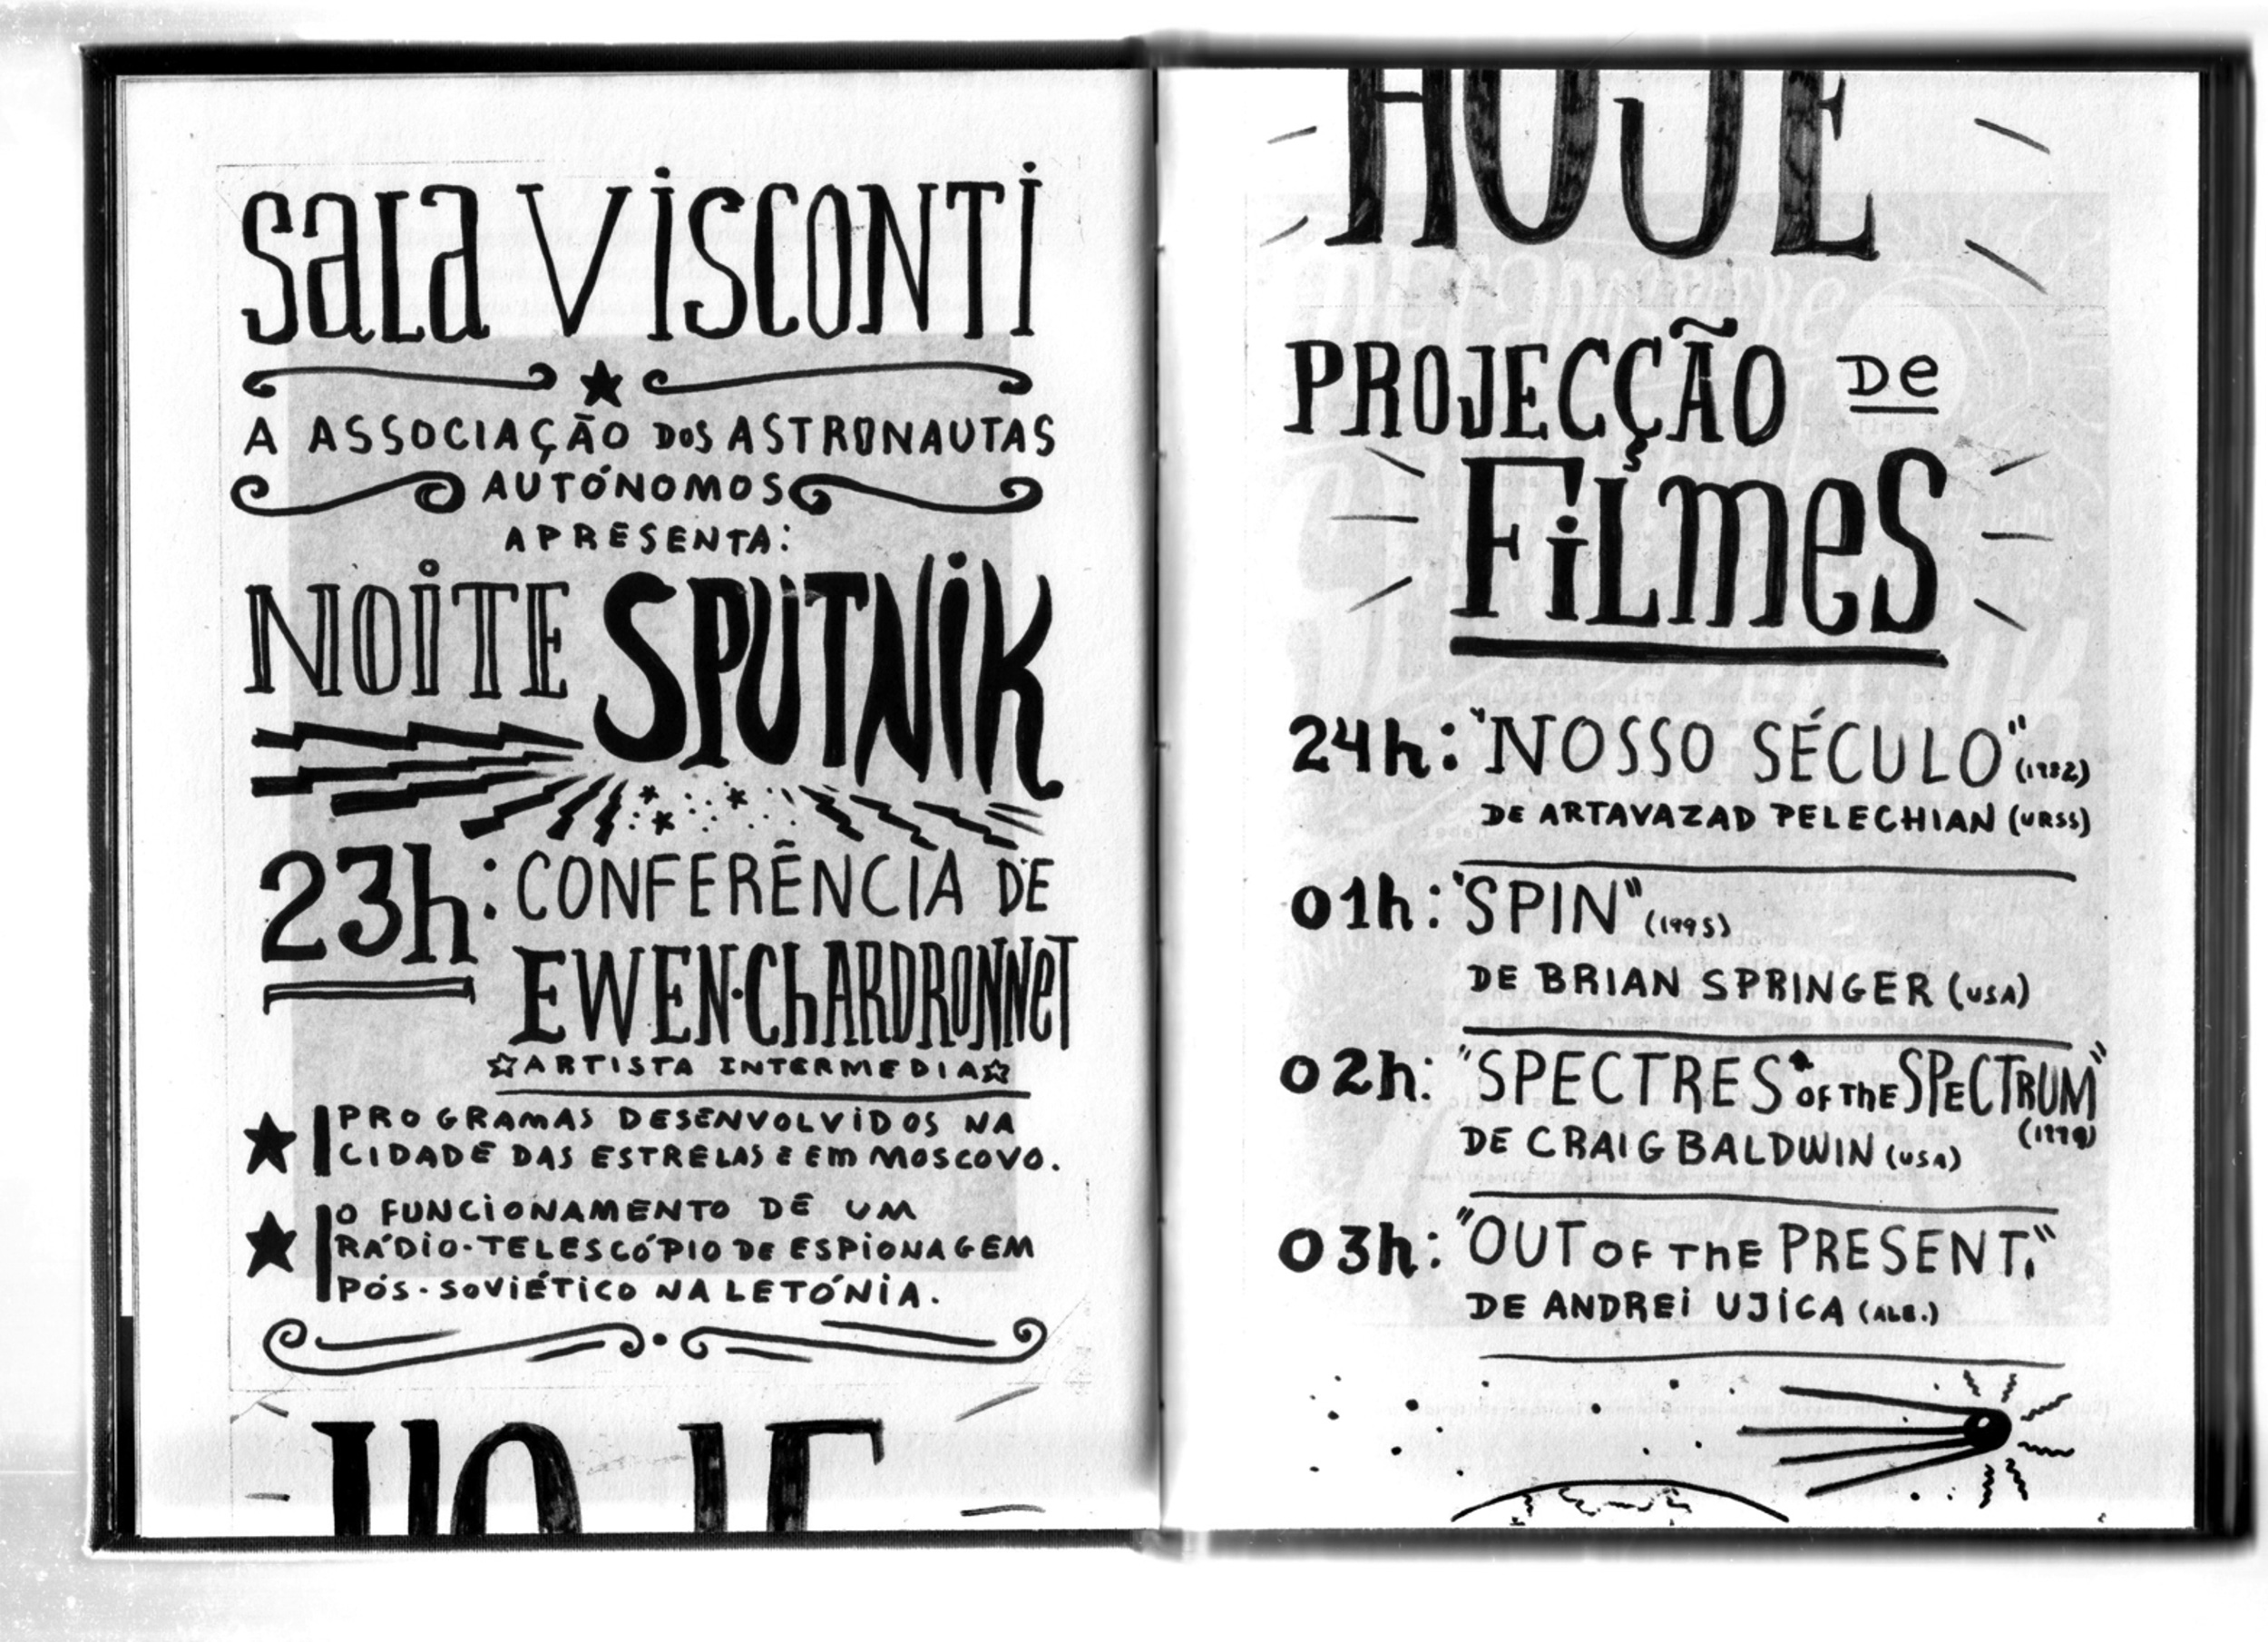 Sala Visconti
A ASSOCIAÇÃO DOS ASTRONAUTAS
AUTÓNOMOS
APRESENTA:
NOITE SPUTNIK
23h: CONFERÊNCIA DE
EWEN·ChARDRONNeT
ARTISTA INTERMEDIA
PROGRAMAS DESENVOLVIDOS NA
CIDADE DAS ESTRELAS E EM MOSCOVO.
O FUNCIONAMENTO DE UM
RÁDIO-TELESCÓPIO DE ESPIONAGEM
PÓS-SOVIÉTICO NA LETÓNIA.
HOJE
HOJE
PROJECÇÃO De
FiLmeS
24h: "NOSSO SÉCULO" (1982)
DE ARTAVAZAD PELECHIAN (URSS)
01h: "SPIN" (1995)
DE BRIAN SPRINGER (USA)
02h: "SPECTRES OF ThE SPECTRUM"
(1999)
DE CRAIG BALDWIN (USA)
03h: "OUT OF ThE PRESENT"
DE ANDREI UJICA (ALE.)